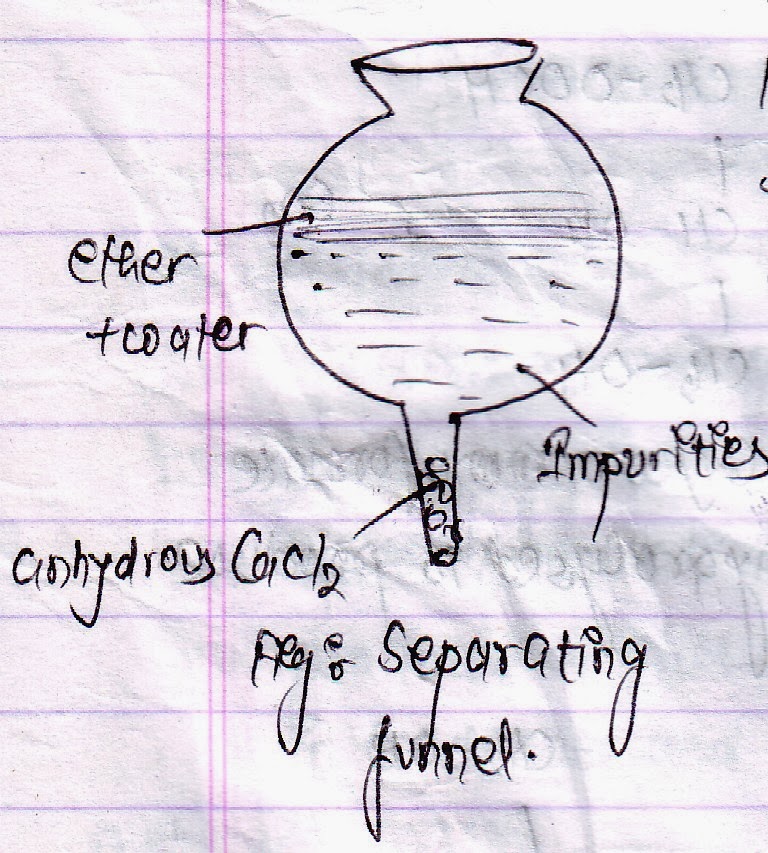 ether
+ coater
Impurities
anhydrous CaCl2
Fig: Separating
funnel.